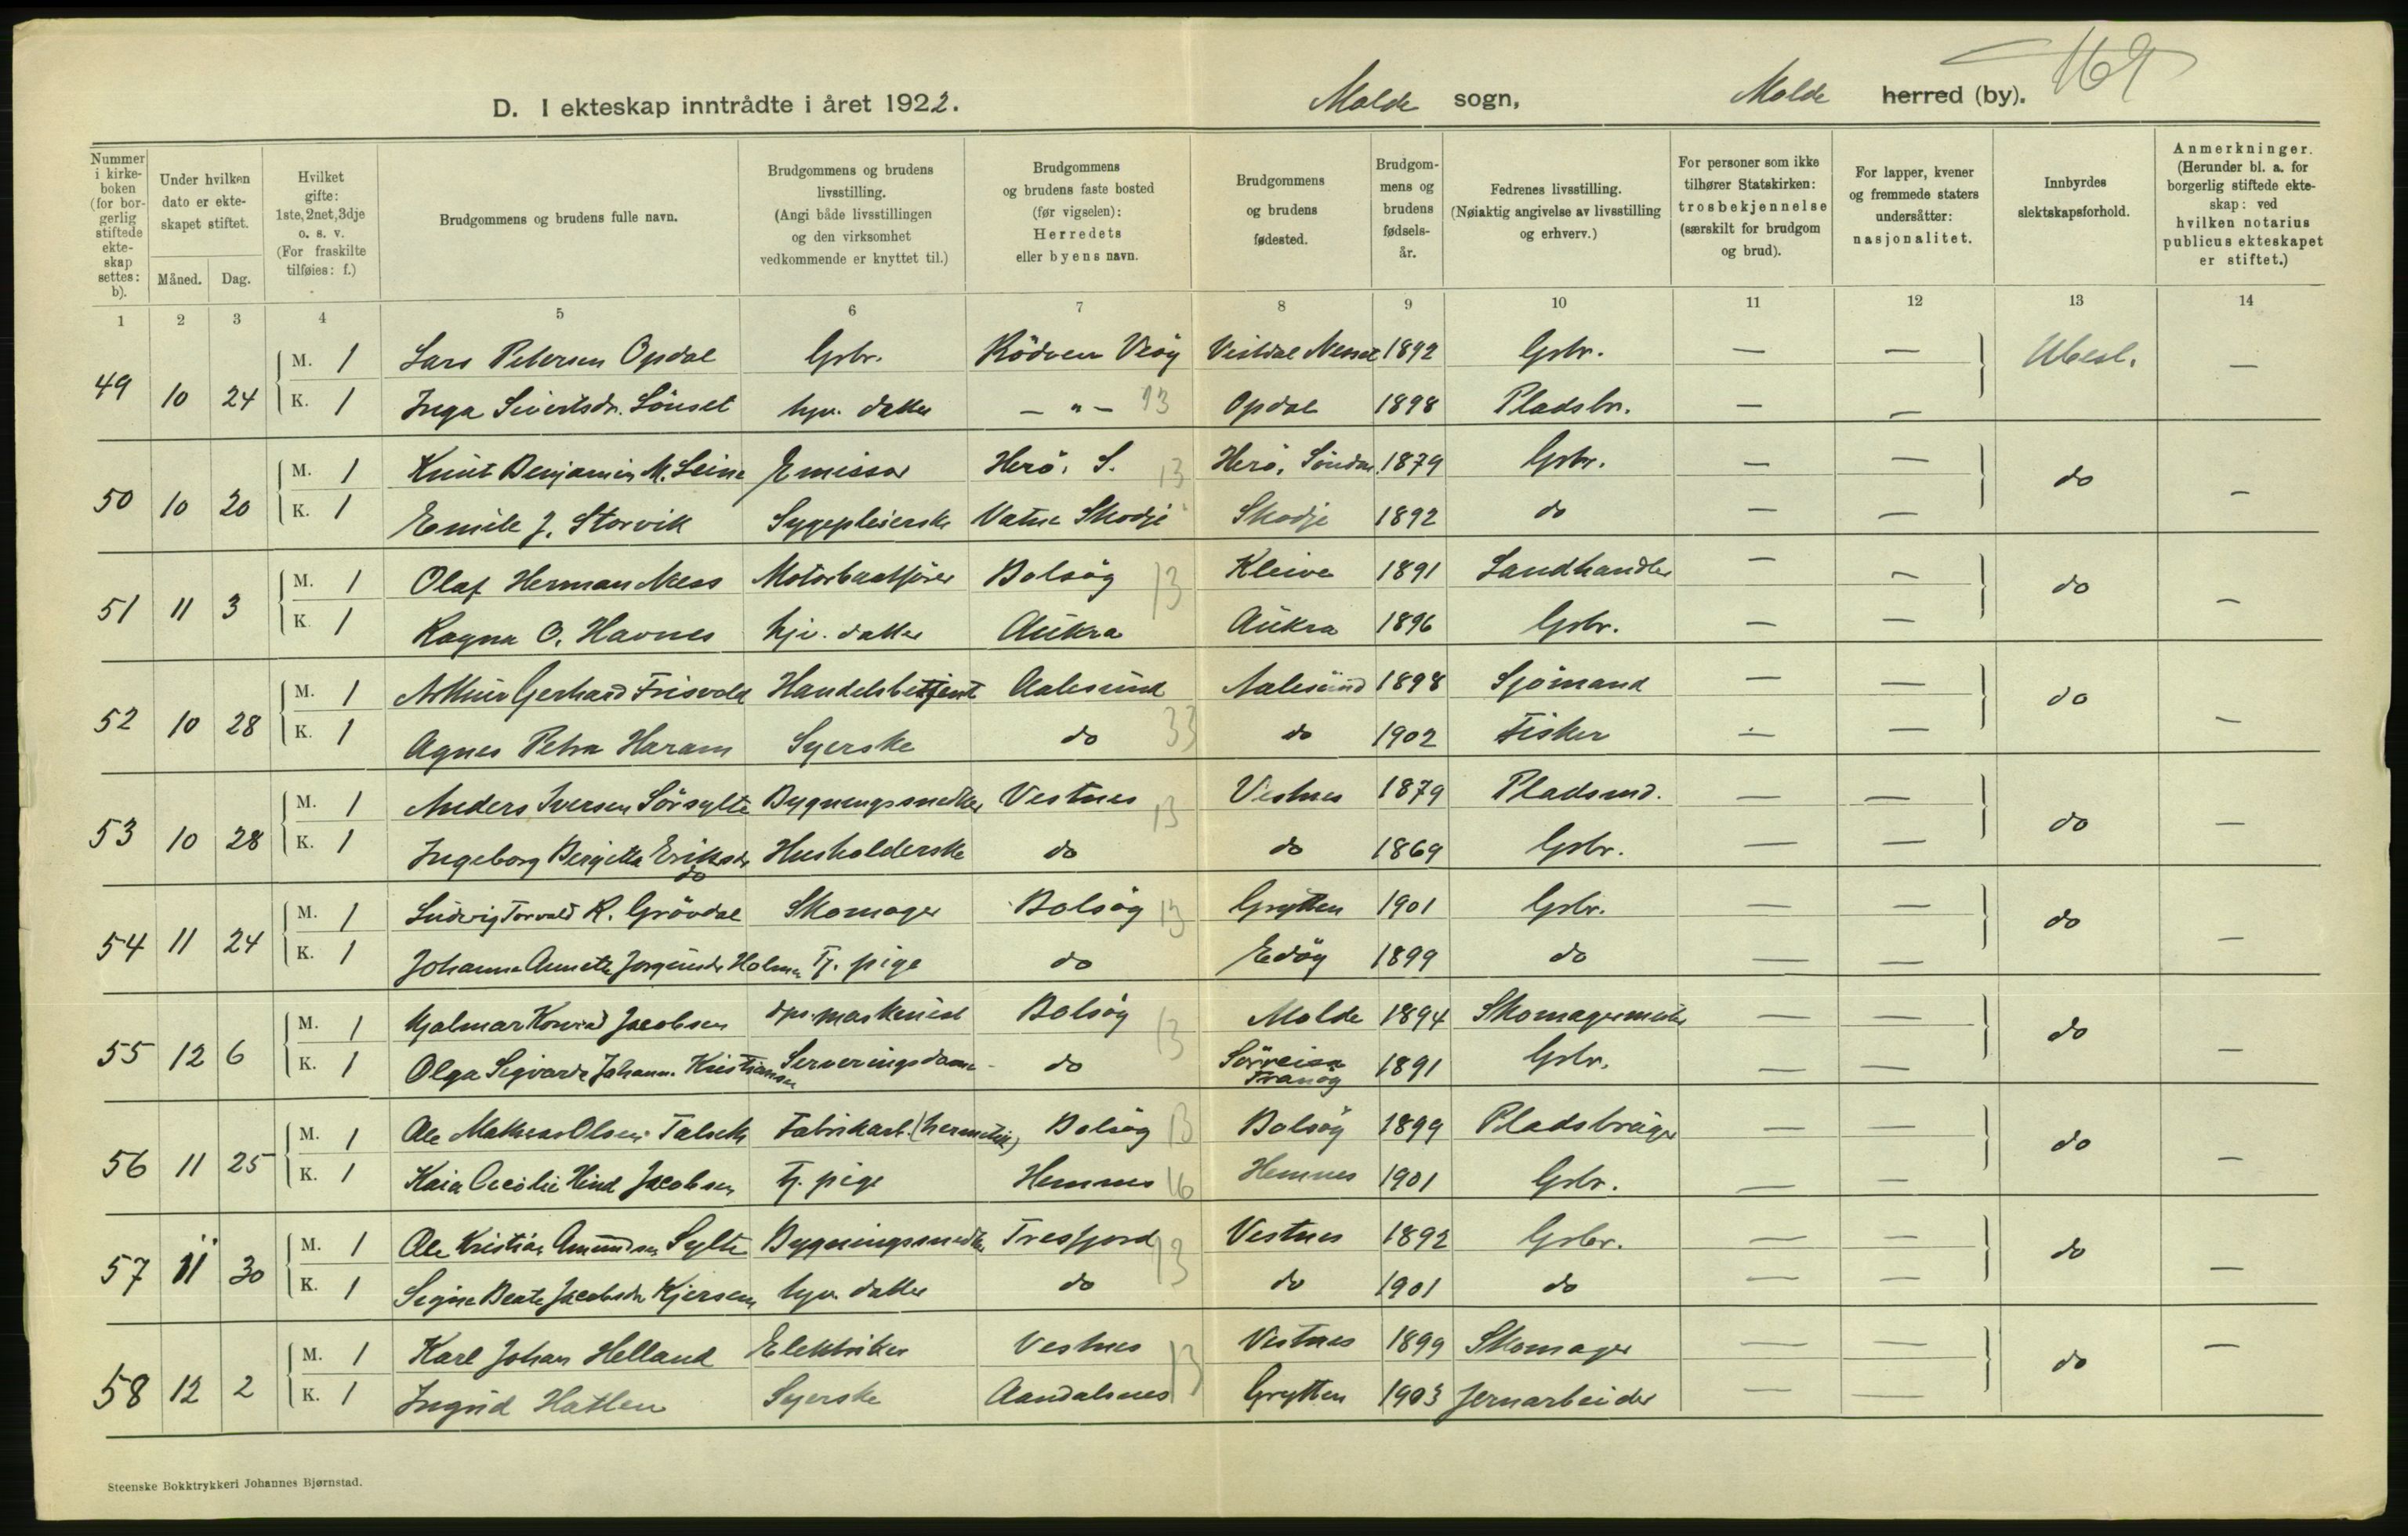 169
D. I ekteskap inntrådte i året 1922. Molde sogn, Molde herred (by).
Nummer i kirkeboken (for borgerlig stiftede ekteskap settes: b).
Under hvilken dato er ekteskapet stiftet.
Måned. Dag.
Hvilket gifte: 1ste, 2net, 3dje o. s. v. (For fraskilte tilføies: f.)
Brudgommens og brudens fulle navn.
Brudgommens og brudens livsstilling. (Angi både livsstillingen og den virksomhet vedkommende er knyttet til.)
Brudgommens og brudens faste bosted (før vigselen): Herredets eller byens navn.
Brudgommens og brudens fødested.
Brudgommens og brudens fødselsår.
Fedrenes livsstilling. (Nøiaktig angivelse av livsstilling og erhverv.)
For personer som ikke tilhører Statskirken: trosbekjennelse (særskilt for brudgom og brud).
For lapper, kvener og fremmede staters undersåtter: nasjonalitet.
Innbyrdes slektskapsforhold.
Anmerkninger. (Herunder bl. a. for borgerlig stiftede ekteskap: ved hvilken notarius publicus ekteskapet er stiftet.)
1 2 3 4 5 6 7 8 9 10 11 12 13 14
49 10 24 M. 1 Lars Petersen Opdal Gbr. Rödven Veöy Vistdal Nesset 1892 Gbr. — — Ubesl. —
K. 1 Inga Sivertsdr. Sönset hjv. datter — " — 13 Opdal 1898 Pladsbr. — —
50 10 20 M. 1 Knut Benjamin M. Leine Emissær Herö, S. 13 Herö, Söndm. 1879 Gbr. — — do —
K. 1 Emile J. Storvik Sygepleierske Vatne Skodje Skodje 1892 do — —
51 11 3 M. 1 Olaf Herman Mess Motorbaatförer Bolsöy 13 Kleive 1891 Landhandler — — do —
K. 1 Ragna O. Havnes hjv. datter Aukra Aukra 1896 Gbr. — —
52 10 28 M. 1 Arthur Gerhard Frisvold Handelsbetjent Aalesund Aalesund 1898 Sjömand — — do —
K. 1 Agnes Petra Haram Syerske do 33 do 1902 Fisker — —
53 10 28 M. 1 Anders Iversen Sörsylte Bygningssnedker Vestnes 13 Vestnes 1879 Pladsmd. — — do —
K. 1 Ingeborg Bergitta Eriksdr do Husholderske do do 1869 Gbr. — —
54 11 24 M. 1 Ludvig Torvald K. Grövdal Skomager Bolsöy 13 Grytten 1901 Gbr. — — do —
K. 1 Johanna Annette Jørgensdr Holmen Tj. pige do Edöy 1899 do — —
55 12 6 M. 1 Hjalmar Konrad Jacobsen dps. maskinist Bolsöy 13 Molde 1894 Skomagermester — — do —
K. 1 Olga Sigvarda Johann. Kristiansen Serveringsdame do Sörreisa Tranöy 1891 Gbr. — —
56 11 25 M. 1 Ole Mathias Olsen Talseth Fabrikarb. (hermetik) Bolsöy 13 Bolsöy 1899 Pladsbruger — — do —
K. 1 Kaia Cecilie Hind Jacobsen Tj. pige Hemnes 16 Hemnes 1901 Gbr. — —
57 11 30 M. 1 Ole Kristian Amundsen Sylte Bygningssnedker Tresfjord 13 Vestnes 1892 Gbr. — — do —
K. 1 Signe Beate Jacobsdr Kjersem hjv. datter do do 1901 do — —
58 12 2 M. 1 Karl Johan Helland Elektriker Vestnes 13 Vestnes 1899 Skomager — — do —
K. 1 Ingrid Hatlen Syerske Aandalsnes Grytten 1903 Jernarbeider — —
Steenske Bokktrykkeri Johannes Bjørnstad.